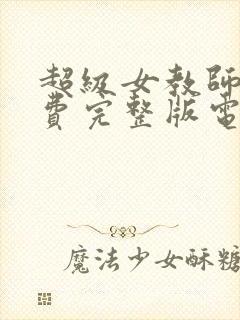 超級女教師
費完整版電
魔法少女酥糖